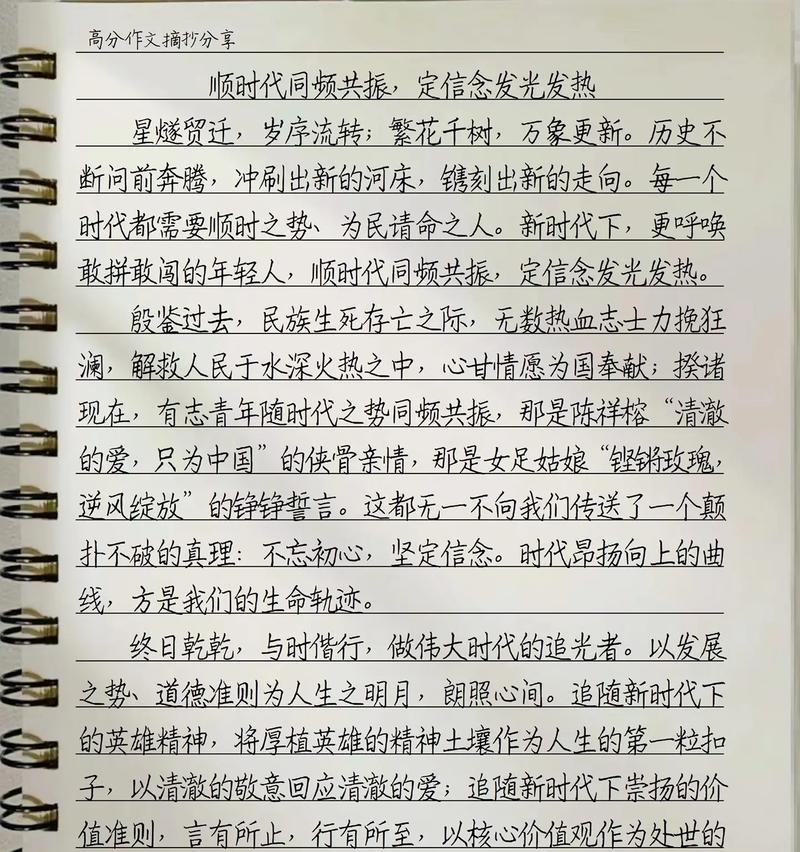 高分作文摘抄分享
顺时代同频共振，定信念发光发热
星燧贸迁，岁序流转；繁花千树，万象更新。历史不
断问前奔腾，冲刷出新的河床，镌刻出新的走向。每一个
时代都需要顺时之势、为民请命之人。新时代下，更呼唤
敢拼敢闯的年轻人，顺时代同频共振，定信念发光发热。
殷鉴过去，民族生死存亡之际，无数热血志士力挽狂
澜，解救人民于水深火热之中，心甘情愿为国奉献；揆诸
现在，有志青年随时代之势同频共振，那是陈祥榕“清澈
的爱，只为中国”的侠骨亲情，那是女足姑娘“铿锵玫瑰，
逆风绽放”的铮铮誓言。这都无一不向我们传送了一个颠
扑不破的真理：不忘初心，坚定信念。时代昂扬向上的曲
线，方是我们的生命轨迹。
终日乾乾，与时偕行，做伟大时代的追光者。以发展
之势、道德准则为人生之明月，朗照心间。追随新时代下
的英雄精神，将厚植英雄的精神土壤作为人生的第一粒扣
子，以清澈的敬意回应清澈的爱；追随新时代下崇扬的价
值准则，言有所止，行有所至，以核心价值观作为处世的